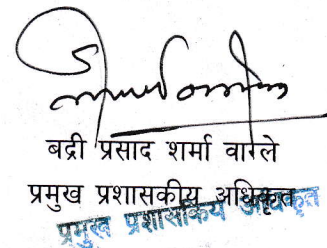 बद्री प्रसाद शर्मा वाग्ले
प्रमुख प्रशासकीय अधिकृत
प्रमुख प्रशासकिय अधिकृत